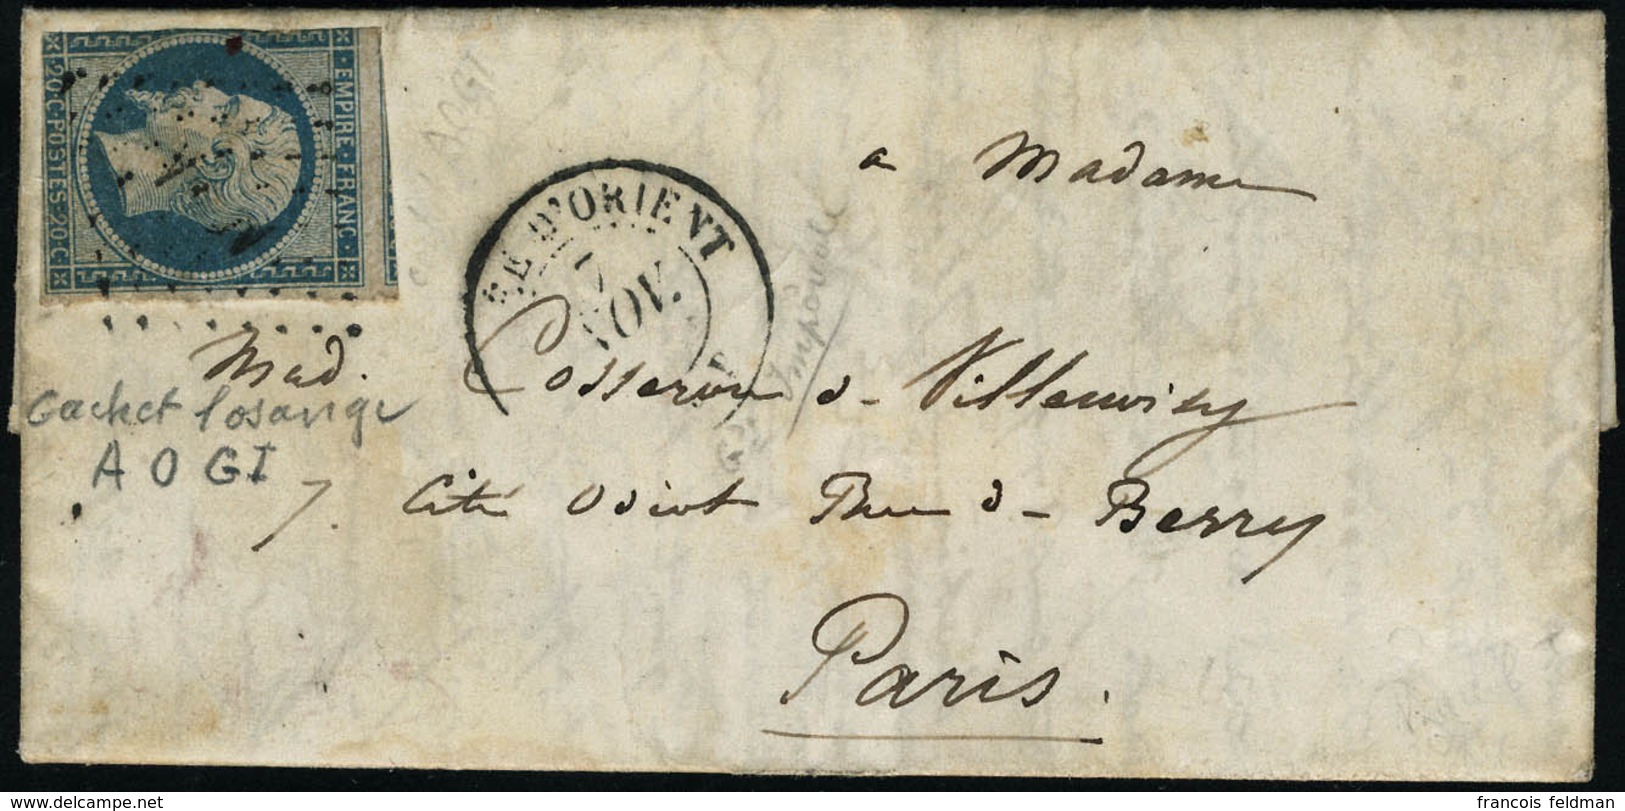 EMPIRE · FRANC ·
20 · C · POSTES · 20 · C
AOGI
a Madame
ÉE D'ORIENT
7
NOV.
Mad. Cosseron d- Villenoisy
Cachet losange
A O GI
7. Cité Odiot Rue d- Berry
Paris.
www.delcampe.net
francois feldman